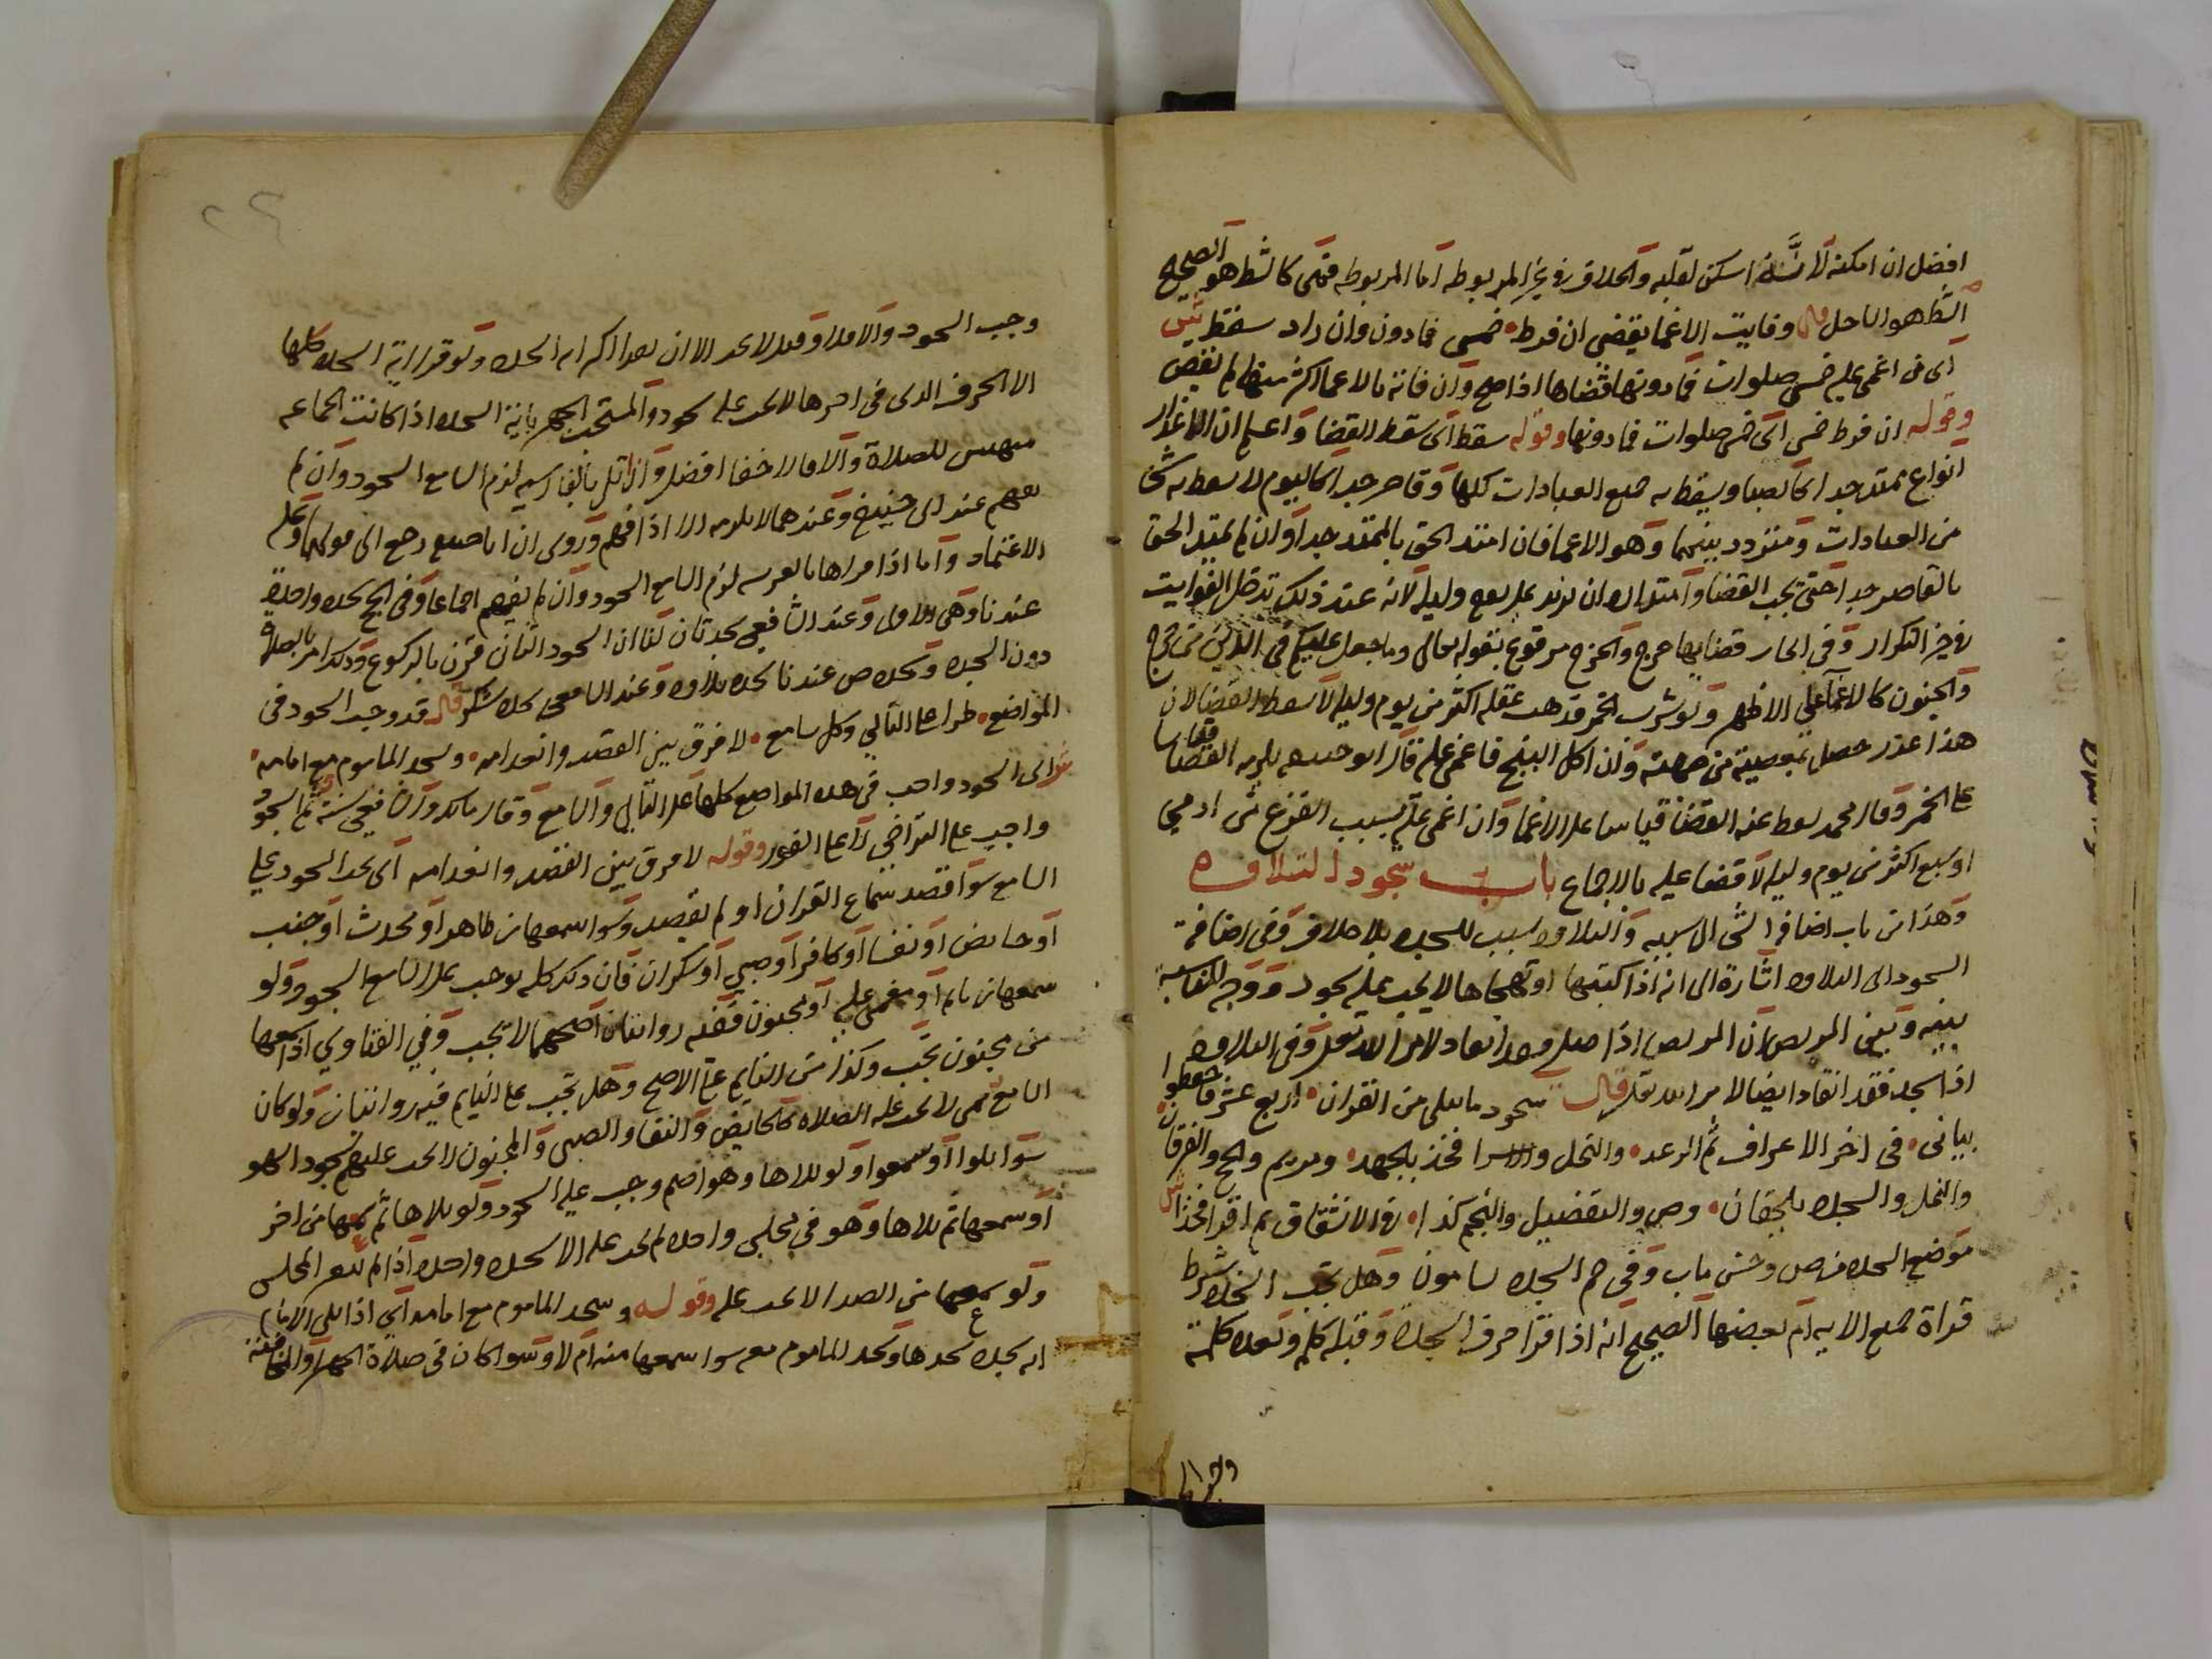 افضل ان امكنه لانه اسكن لقلبه والخلاف في غير المربوطه اما المربوطه فهي كالشط هو الصحيح
الشط هو الساحل قال وفايت الاغما يقضي ان فرط خمس فما دون وان زاد سقط
اى من اغمى عليه خمس صلوات فما دونها قضاها اذا صح وان فاته بالاغما اكثر منها لم يقض
وقوله ان فرط خمس اى خمس صلوات فما دونها وقوله سقط اى سقط القضا واعلم ان الاعذار
انواع ممتد جدا كالصبا ويسقط به جميع العبادات كلها وقاصر جدا كاليوم لا يسقط به شى
من العبادات ومتردد بينهما وهو الاغما فان امتد الحق بالممتد جدا وان لم يمتد الحق
بالقاصر جدا حتى يجب القضا وامتداده ان يزيد على يوم وليله لانه عند ذلك تدخل الفوايت
في حيز التكرار وفى ايجاب قضايها حرج والحرج مرفوع بقوله تعالى وما جعل عليكم فى الدين من حرج
والجنون كالاغما على الاظهر ولو شرب الخمر فذهب عقله اكثر من يوم وليله لا يسقط القضا لان
هذا عذر حصل بمعصية من جهته وان اكل البنج فاغمى عليه قال ابو حنيفه يلزمه القضا قياسا
على الخمر وقال محمد يسقط عنه القضا قياسا على الاغما وان اغمى عليه بسبب الفزع من ادمي
او سبع اكثر من يوم وليله لا قضا عليه بالاجماع باب سجود التلاوه
وهذا من باب اضافه الشى الى سببه والتلاوه سبب للسجده بلا خلاف وفى اضافة
السجود الى التلاوه اشارة الى انه اذا كتبها او تهجاها لا يجب عليه سجود ووجه المناسبة
بينه وبين المريض ان المريض اذا صلى فقد انقاد لامر الله تعالى وفى التلاوه
اذا سجد فقد انقاد ايضا لامر الله تعالى قال سجود ما يتلى من القران اربع عشر فاحفظوا
بيانى فى اخر الاعراف ثم الرعد والنحل والاسرا فخذ بالجهد ومريم والحج والفرقان
والنمل والسجده وص والتفضيل والنجم كذا في الانشقاق ثم اقرا فخذا
موضع السجده من ص وحسن ماب وفى حم السجده لا يسامون وهل تجب السجده بشرط
قراة جميع الايه ام بعضها الصحيح انه اذا قرا حرف السجدة وقبله كلمه وبعده كلمة
وجب السجود والا فلا وقيل لا يجب الا ان يقرا اكثر ايه السجده ولو قرا اية السجده كلها
الا الحرف الذى فى اخرها لا يجب عليه سجود والمستحب الجهر باية السجده اذا كانت الجماعه
متهيين للصلاة والا فالاخفا افضل وان تلى بالفارسيه لزم السامع السجود وان لم
يفهم عند ابى حنيفه وعندهما لا يلزمه الا اذا فهم وروى ان ابا حنيفه رجع الى قولهما وعليه
الاعتماد واما اذا قراها بالعربيه لزم السامع السجود وان لم يفهم اجماعا وفى الحج سجده واحدة
عندنا وهى الاولى وعند الشافعي سجدتان لنا ان السجود الثانى قرن بالركوع وذلك امر بالصلاة
دون السجده وسجده ص عندنا سجده تلاوه وعند الشافعى سجده شكر قال قد وجب السجود فى
المواضع طرا على التالي وكل سامع لا فرق بين القصد وانعدامه وليسجد الماموم مع امامه
اى السجود واجب فى هذه المواضع كلها على التالى والسامع وقال مالك والشافعى سنة ثم السجود
واجب على التراخي لا على الفور وقوله لا فرق بين القصد وانعدامه اى يجب السجود على
السامع سوا قصد سماع القران او لم يقصد وسوا سمعها من طاهر او محدث او جنب
او حايض او نفسا او كافر او صبي او سكران فان ذلك كله يوجب على السامع السجود ولو
سمعها من نايم او مغمى عليه او مجنون ففيه روايتان اصحهما لا تجب وفي الفتاوي اذا سمعها
من مجنون تجب وكذا من النايم على الاصح وهل تجب على النايم فيه روايتان ولو كان
السامع ممن لا تجب عليه الصلاه كالحايض والنفسا والصبى والمجنون لا يجب عليهم سجود السهو
سوا تلوا او سمعوا ولو تلاها وهو اصم وجب عليه السجود ولو تلاها ثم سمعها من اخر
او سمعها ثم تلاها وهو في مجلس واحد لم تجب عليه الا سجده واحده اذا لم يتغير المجلس
ولو سمعها من الصدا لا تجب عليه وقوله وسجد الماموم مع امامه اى اذا تلى الامام
ايه سجده سجدها وسجد الماموم معه سوا سمعها منه ام لا وسوا كان فى صلاة الجهر او المخافته